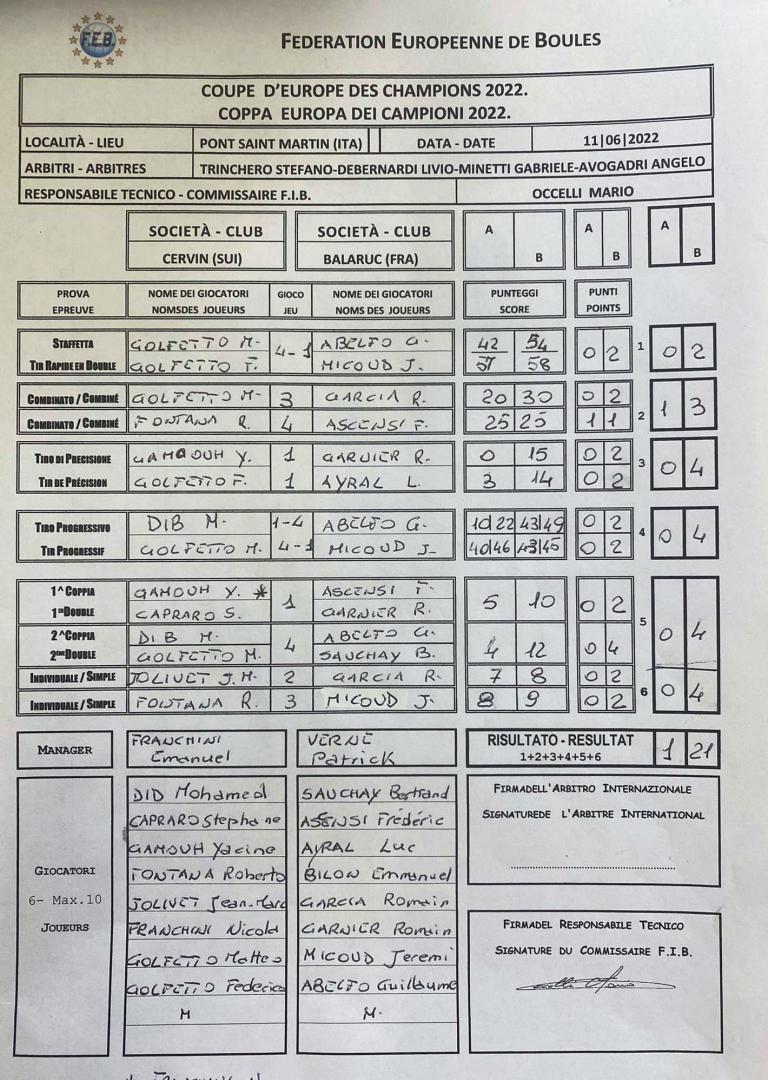 F.E.B FEDERATION EUROPEENNE DE BOULES
COUPE D'EUROPE DES CHAMPIONS 2022.
COPPA EUROPA DEI CAMPIONI 2022.
LOCALITÀ - LIEU PONT SAINT MARTIN (ITA) DATA - DATE 11|06|2022
ARBITRI - ARBITRES TRINCHERO STEFANO-DEBERNARDI LIVIO-MINETTI GABRIELE-AVOGADRI ANGELO
RESPONSABILE TECNICO - COMMISSAIRE F.I.B. OCCELLI MARIO
SOCIETÀ - CLUB SOCIETÀ - CLUB A B A B A B
CERVIN (SUI) BALARUC (FRA)
PROVA NOME DEI GIOCATORI GIOCO NOME DEI GIOCATORI PUNTEGGI PUNTI
EPREUVE NOMSDES JOUEURS JEU NOMS DES JOUEURS SCORE POINTS
STAFFETTA GOLFETTO M. 4-1 ABELFO G. 42 54 0 2 1 0 2
TIR RAPIDE EN DOUBLE GOLFETTO F. MICOUD J. 57 58
COMBINATO / COMBINÉ GOLFETTO M. 3 GARCIA R. 20 30 0 2 1 3
COMBINATO / COMBINÉ FONTANA R. 4 ASCENSI F. 25 25 1 1 2
TIRO DI PRECISIONE GAMOUH Y. 1 GARNIER R. 0 15 0 2 3 0 4
TIR DE PRÉCISION GOLFETTO F. 1 AYRAL L. 3 14 0 2
TIRO PROGRESSIVO DIB M. 1-4 ABELFO G. 10|22 43|49 0 2 4 0 4
TIR PROGRESSIF GOLFETTO M. 4-1 MICOUD J. 40|46 43|45 0 2
1^ COPPIA GAMOUH Y. * 1 ASCENSI F. 5 10 0 2 5 0 4
1ER DOUBLE CAPRARO S. GARNIER R.
2^ COPPIA DIB M. 4 ABELFO G. 4 12 0 4
2EME DOUBLE GOLFETTO M. SAUCHAY B.
INDIVIDUALE / SIMPLE JOLIVET J.M. 2 GARCIA R. 7 8 0 2 6 0 4
INDIVIDUALE / SIMPLE FONTANA R. 3 MICOUD J. 8 9 0 2
MANAGER FRANCHINI Emanuel VERNE Patrick RISULTATO - RESULTAT 1+2+3+4+5+6 1 21
DID Mohamed SAUCHAY Bertrand FIRMADELL'ARBITRO INTERNAZIONALE
CAPRARO Stephane ASENSI Frédéric SIGNATUREDE L'ARBITRE INTERNATIONAL
GAMOUH Yacine AYRAL Luc
GIOCATORI FONTANA Roberto BILON Emmanuel
6- Max.10 JOLIVET Jean-Marc GARCIA Romain
JOUEURS FRANCHINI Nicola GARNIER Romain FIRMADEL RESPONSABILE TECNICO
GOLFETTO Matteo MICOUD Jeremi SIGNATURE DU COMMISSAIRE F.I.B.
GOLFETTO Federico ABELFO Guillaume
M M.